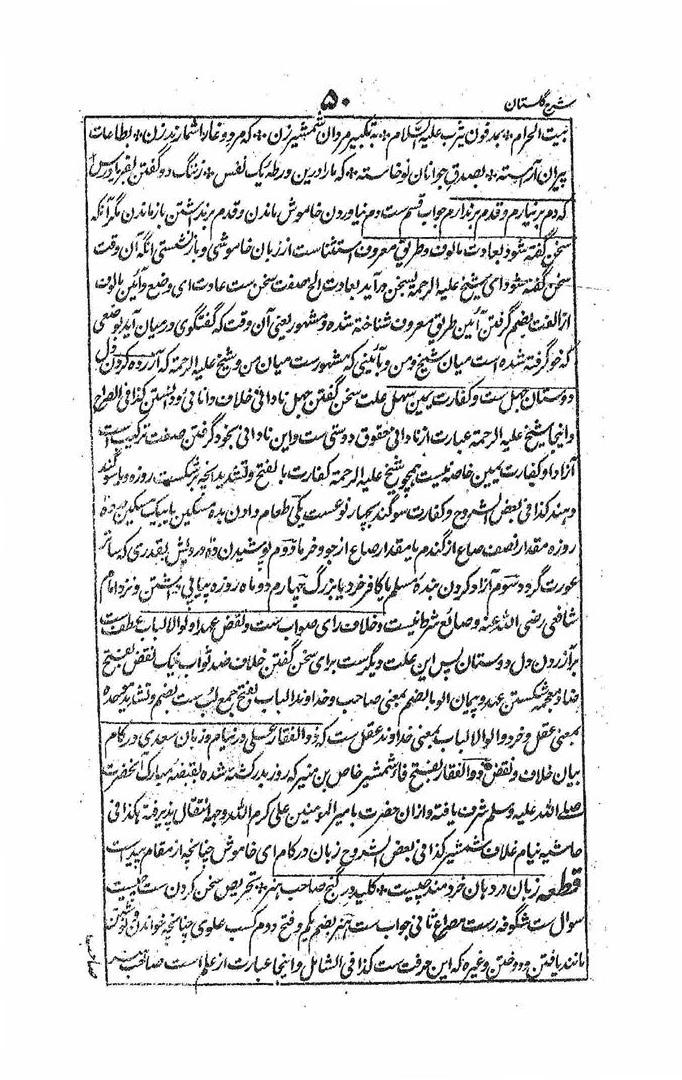 شرح گلستان
۵۰
بیت الحرام ٭ بمدفون یثرب علیه السلام ٭ به تکبیر مردان شمشیر زن ٭ که مرد وغا را شمارند زن ٭ بطاعات
پیران آراسته ٭ بصدق جوانان نوخاسته ٭ که ما را درین ورطه یک نفس ٭ ز ننگ دو گفتن بفریاد رس
که دم بر نیارم و قدم بر ندارم جواب قسم ست دم نیاوردن خاموش ماندن و قدم برنداشتن باز ماندن مگر آنکه
سخن گفته شود بعادت مالوف و طریق معروف استثناست از زبان خاموشی و باز نشستی آنگه آن وقت
سخن گفته شود ای شیخ علیه الرحمة بسخن درآید بعادت الخ صفت سخن ست عادت ای وضع و آئین مالوف
از الفت بضم گرفتن آئین طریق معروف شناخته شده و مشهور یعنی آن وقت که گفتگوی درمیان آید بوضعی
که خو گرفته شده است میان شیخ و من و بآئینی که مشهور ست میان من و شیخ علیه الرحمة که آزرده کردن دل
دوستان جهل ست و کفارت یمین سهل علت سخن گفتن جهل نادانی خلاف دانائی و نادانستن کذا فی الصراح
و اینجا شیخ علیه الرحمة عبارت از نادانی حقوق دوستی ست و این نادانی بخود گرفتن صفت ترکیب است
آزاد او کفارت یمین خاصه نیست همچو شیخ علیه الرحمه کفارت بالفتح و تشدید آنچه بر شکست روزه و یا سوگند
دهند کذا فی بعض الشروح و کفارت سوگند بچهار نوعست یکی طعام دادن بده مسکین یا بیک مسکین ده
روزه مقدار نصف صاع از گندم یا مقدار صاع از جو و خرما دوم پوشیدن ده درویش بقدری که ساتر
عورت گردد سوم آزاد کردن بنده مسلم یا کافر خرد یا بزرگ چهارم دو ماه روزه پیاپی داشتن و نزد امام
شافعی رضی الله عنه و صائع شرط نیست و خلاف رای صواب ست و نقض عهد اولوالالباب عطفست
بر آزردن دل دوستان پس این علت دیگر ست برای سخن گفتن خلاف ضد ثواب نیک نقض بفتح
ضاد معجمه شکستن عهد و پیمان الو بالضم بمعنی صاحب و خداوند الباب بفتح جمع لب ست بضم و تشدید موحده
بمعنی عقل و خرد و اولوالالباب بمعنی خداوند عقل ست که ذوالفقار علی در نیام و زبان سعدی در کام
بیان خلاف و نقض ذوالفقار بفتح فا و شمشیر خاص بن منبه که روز بدر کشته شده بقبضه مبارک آنحضرت
صلے الله علیه وسلم شرف یافته و ازان حضرت بامیر المومنین علی کرم الله وجهه انتقال پذیرفته هکذا فی
حاشیه نیام غلاف شمشیر کذا فی بعض الشروح زبان در کام ای خاموش چنانچه از مقام پیداست
قطعه زبان در دهان خردمند چیست ٭ کلید در گنج صاحب هنر ٭ تحریص سخن کردن ست چیست
سوال ست شگوفه رست مصراع ثانی جواب ست هنر بضم یکم و فتح دوم کسب علوی چنانچه خواندن و نوشتن
مانند یافتن و دوختن و غیره که این حرفت ست کذا فی الشامل و اینجا عبارت از علم است صاحب هنر